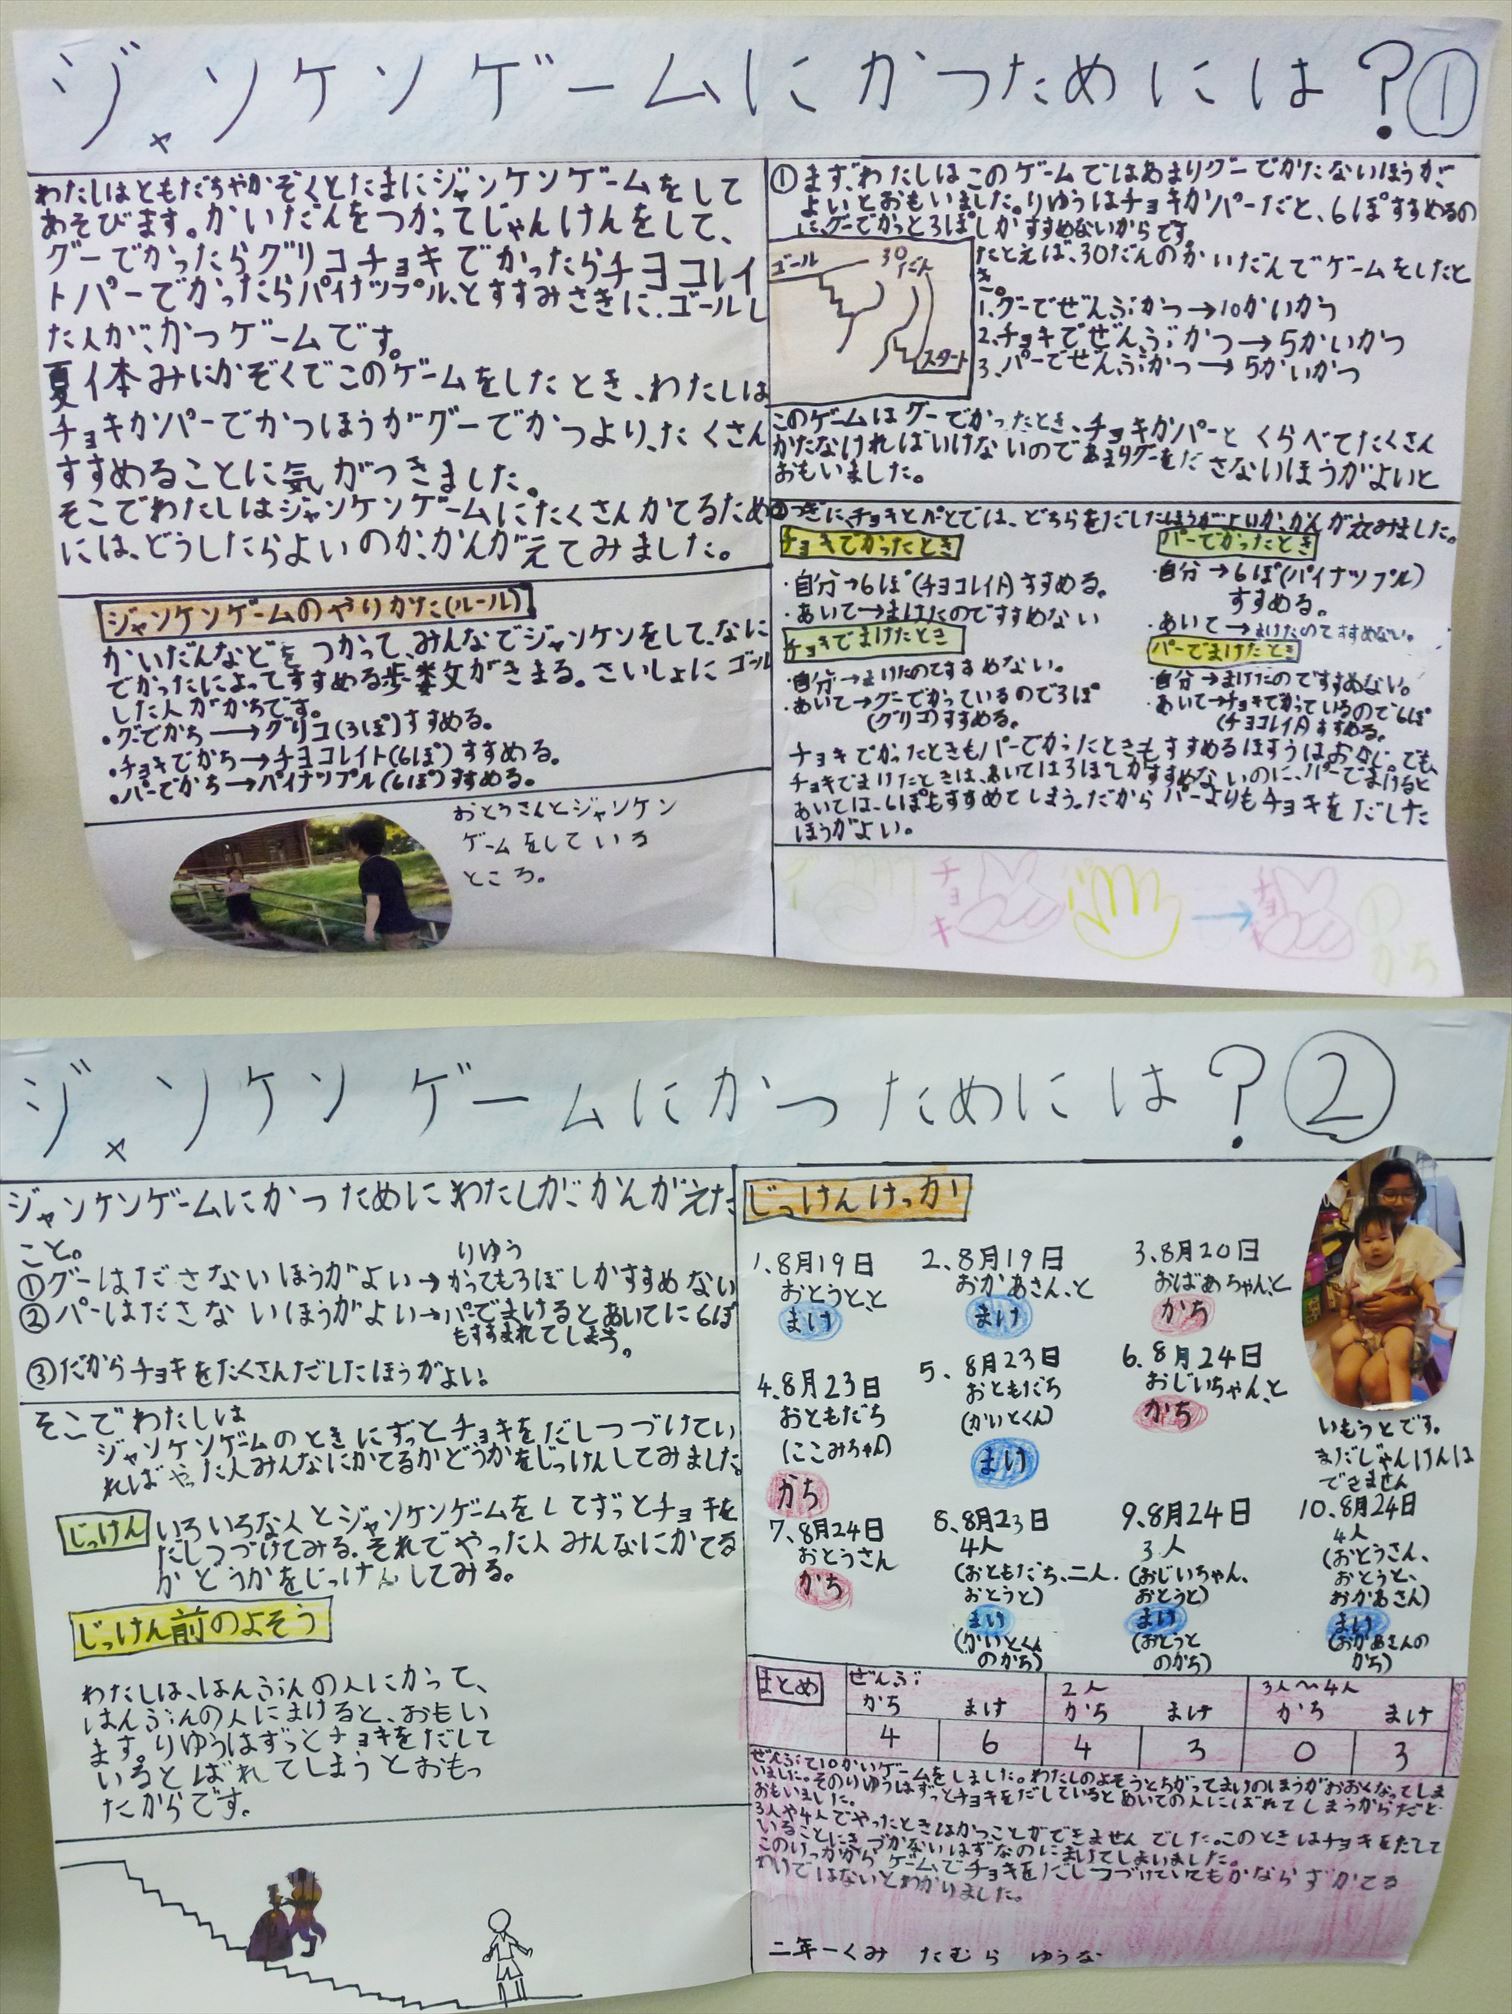 ジャンケンゲームにかつためには？①
わたしはともだちやかぞくとたまにジャンケンゲームをして
あそびます。かいだんをつかってじゃんけんをして、
グーでかったらグリコチョキでかったらチヨコレイ
トパーでかったらパイナツプル、とすすみさきに、ゴールし
た人が、かつゲームです。
夏休みにかぞくでこのゲームをしたとき、わたしは
チョキかパーでかつほうがグーでかつより、たくさん
すすめることに気がつきました。
そこでわたしはジャンケンゲームにたくさんかてるため
には、どうしたらよいのか、かんがえてみました。
ジャンケンゲームのやりかた(ルール)
かいだんなどをつかって、みんなでジャンケンをして、なに
でかったによってすすめる歩数がきまる。さいしょにゴール
した人がかちです。
・グーでかち→グリコ(3ぽ)すすめる。
・チョキでかち→チヨコレイト(6ぽ)すすめる。
・パーでかち→パイナツプル(6ぽ)すすめる。
おとうさんとジャンケン
ゲームをしている
ところ。
①まず、わたしはこのゲームではあまりグーでかたないほうが、
よいとおもいました。りゆうはチョキかパーだと、6ぽすすめるの
に、グーでかつと3ぽしかすすめないからです。
ゴール
30だん
スタート
たとえば、30だんのかいだんでゲームをしたと
き。
1.グーでぜんぶかつ→10かいかつ
2.チョキでぜんぶかつ→5かいかつ
3.パーでぜんぶかつ→5かいかつ
このゲームはグーでかったとき、チョキかパーとくらべてたくさん
かたなければいけないのであまりグーをださないほうがよいと
おもいました。
②つぎに、チョキとパーとでは、どちらをだしたほうがよいか、かんがえみました。
チョキでかったとき
・自分→6ぽ(チヨコレイト)すすめる。
・あいて→まけたのですすめない
チョキでまけたとき
・自分→まけたのですすめない。
・あいて→グーでかっているので3ぽ
(グリコ)すすめる。
パーでかったとき
・自分→6ぽ(パイナツプル)
すすめる。
・あいて→まけたのですすめない。
パーでまけたとき
・自分→まけたのですすめない。
・あいて→チョキでかっているので6ぽ
(チヨコレイト)すすめる。
チョキでかったときもパーでかったときもすすめるほすうはおなじ。でも、
チョキでまけたときは、あいては3ぽしかすすめないのに、パーでまけると
あいては、6ぽもすすめてしまう。だからパーよりもチョキをだした
ほうがよい。
チョキ
チョキ
のかち
ジャンケンゲームにかつためには？②
ジャンケンゲームにかつためにわたしがかんがえた
こと。
りゆう
①グーはださないほうがよい→かっても3ぽしかすすめない
②パーはださないほうがよい→パーでまけるとあいてに6ぽ
もすすまれてしまう。
③だからチョキをたくさんだしたほうがよい。
そこでわたしは
ジャンケンゲームのときにずっとチョキをだしつづけてい
ればやった人みんなにかてるかどうかをじっけんしてみました。
じっけん
いろいろな人とジャンケンゲームをしてずっとチョキを
だしつづけてみる。それでやった人みんなにかてる
かどうかをじっけんしてみる。
じっけん前のよそう
わたしは、はんぶんの人にかって、
はんぶんの人にまけると、おもい
ます。りゆうはずっとチョキをだして
いるとばれてしまうとおもっ
たからです。
じっけんけっか
1、8月19日
おとうとと
まけ
2、8月19日
おかあさん、と
まけ
3、8月20日
おばあちゃん、と
かち
4、8月23日
おともだち
(ここみちゃん)
かち
5、8月23日
おともだち
(かいとくん)
まけ
6、8月24日
おじいちゃん、と
かち
いもうとです。
まだじゃんけんは
できません
7、8月24日
おとうさん
かち
8、8月23日
4人
(おともだち、二人、
おとうと)
まけ
(かいとくん
のかち)
9、8月24日
3人
(おじいちゃん、
おとうと)
まけ
(おとうと
のかち)
10、8月24日
4人
(おとうさん、
おとうと、
おかあさん)
まけ
(おかあさんの
かち)
まとめ
ぜんぶ 2人 3人〜4人
かち まけ かち まけ かち まけ
4 6 4 3 0 3
ぜんぶで10かいゲームをしました。わたしのよそうとちがってまけのほうがおおくなってしま
いました。そのりゆうはずっとチョキをだしているとあいての人にばれてしまうからだと
おもいました。
3人や4人でやったときはかつことができませんでした。このときはチョキをだして
いることにきづかないはずなのにまけてしまいました。
このけっかからゲームでチョキをだしつづけていてもかならずかてる
わけではないとわかりました。
二年一くみ たむら ゆうな